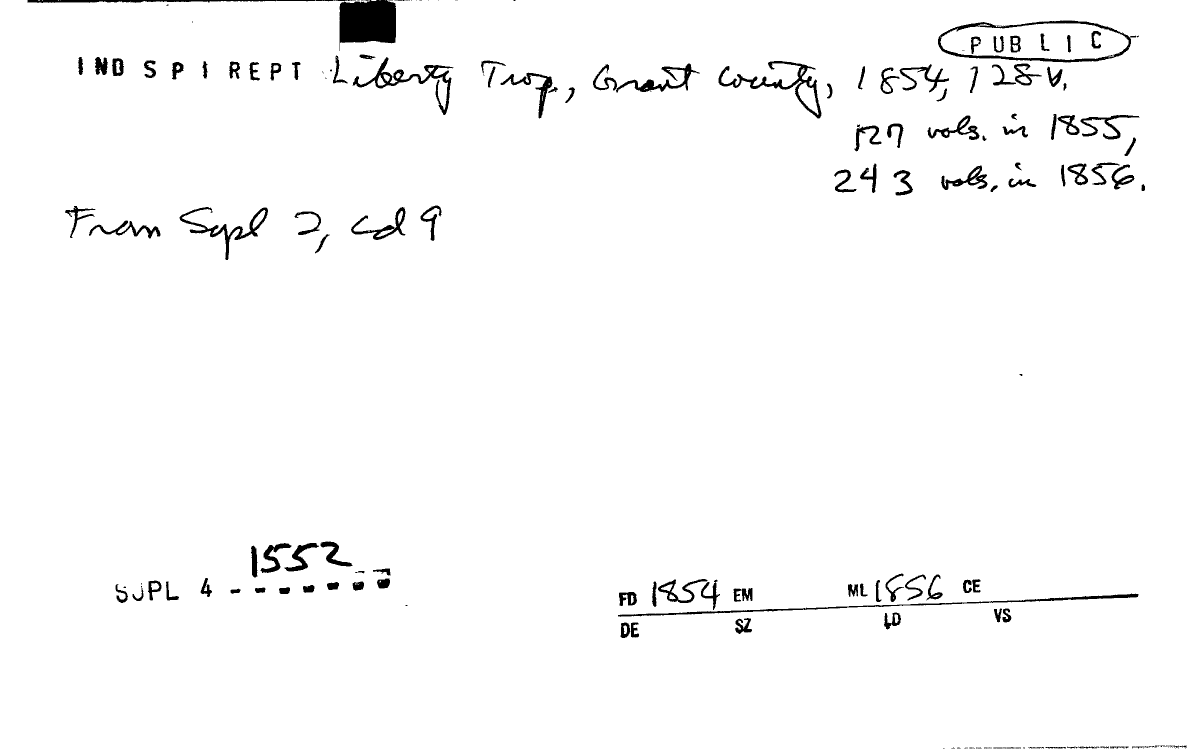 PUBLIC
IND SPI REPT Liberty Twp., Grant County, 1854, 128 v.
127 vols. in 1855,
243 vols. in 1856.
From Supl 2, cd 9
1552
SUPL 4 - - - - - - -
FD 1854 EM ML 1856 CE
DE SZ LD VS